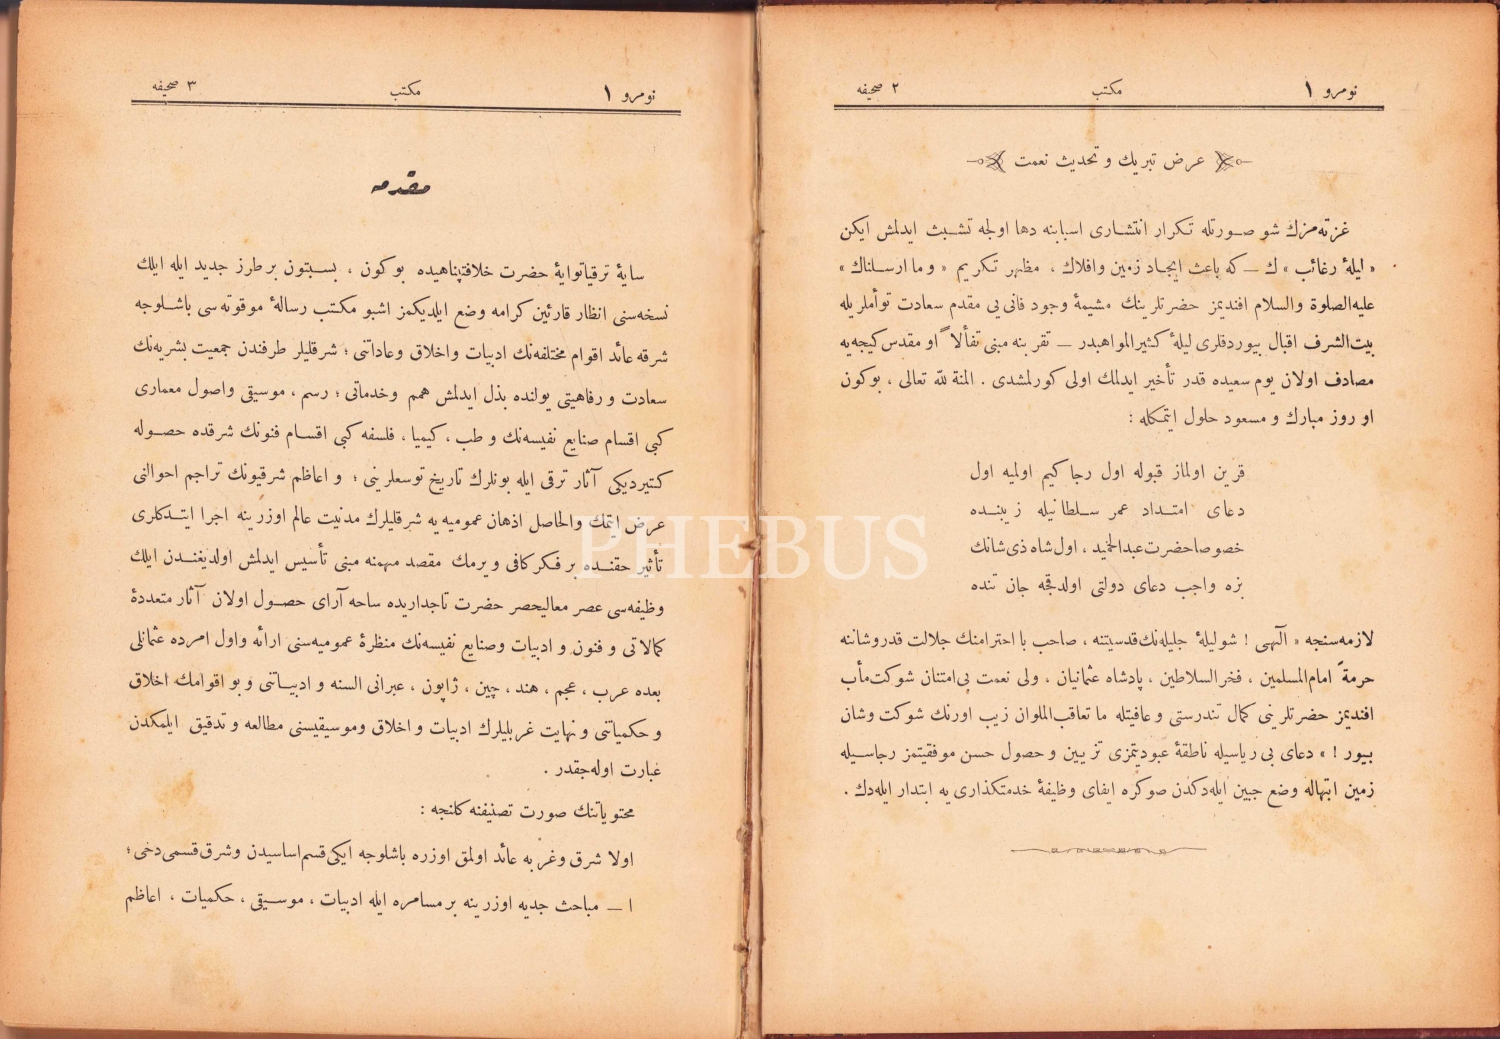 نومرو ١ مكتب ٢ صحيفه
عرض تبريك و تحديث نعمت
غزته‌مزك شو صورتله تكرار انتشارى اسبابنه دها اولجه تشبث ايدلمش ايكن
« ليلۀ رغائب » ك — كه باعث ايجاد زمين وافلاك ، مظهر تكريم « وما ارسلناك »
عليه‌الصلوة والسلام افنديمز حضرتلرينك مشيمۀ وجود فانى يى مقدم سعادت توأملريله
بيت‌الشرف اقبال بيوردقلرى ليلۀ كثيرالمواهبدر — تقربنه مبنى تفألاً او مقدس كيجه‌يه
مصادف اولان يوم سعيده قدر تأخير ايدلمك اولى كورلمشدى . المنة لله تعالى ، بوكون
او روز مبارك و مسعود حلول ايتمكله :
قرين اولماز قبوله اول رجا كيم اولميه اول
دعاى امتداد عمر سلطانيله زيبنده
خصوصا حضرت عبدالحميد ، اول شاه ذى‌شانك
بزه واجب دعاى دولتى اولدقجه جان تنده
لازمه‌سنجه « آلهى ! شو ليلۀ جليله‌نك قدسيتنه ، صاحب با احترامنك جلالت قدروشاننه
حرمةً امام‌المسلمين ، فخرالسلاطين ، پادشاه عثمانيان ، ولى نعمت بى‌امتنان شوكت‌مأب
افنديمز حضرتلرينى كمال تندرستى و عافيتله ما تعاقب‌الملوان زيب اورنك شوكت وشان
بيور ! » دعاى بى رياسيله ناطقۀ عبوديتمزى تزيين و حصول حسن موفقيتمز رجاسيله
زمين ابتهاله وضع جبين ايله‌دكدن صوكره ايفاى وظيفۀ خدمتكذارى يه ابتدار ايله‌دك .
نومرو ١ مكتب ٣ صحيفه
مقدمه
سايۀ ترقياتوايۀ حضرت خلافتپناهيده بوكون ، بسبتون بر طرز جديد ايله ايلك
نسخه‌سنى انظار قارئين كرامه وضع ايلديكمز اشبو مكتب رسالۀ موقوته‌سى باشلوجه
شرقه عائد اقوام مختلفه‌نك ادبيات واخلاق وعاداتنى ؛ شرقليلر طرفندن جمعيت بشريه‌نك
سعادت و رفاهيتى يولنده بذل ايدلمش همم وخدماتى ؛ رسم ، موسيقى واصول معمارى
كبى اقسام صنايع نفيسه‌نك و طب ، كيميا ، فلسفه كبى اقسام فنونك شرقده حصوله
كتيرديكى آثار ترقى ايله بونلرك تاريخ توسعلرينى ؛ و اعاظم شرقيونك تراجم احوالنى
عرض ايتمك والحاصل اذهان عموميه يه شرقليلرك مدنيت عالم اوزرينه اجرا ايتدكلرى
تأثير حقنده بر فكر كافى ويرمك مقصد مهمنه مبنى تأسيس ايدلمش اولديغندن ايلك
وظيفه‌سى عصر معاليحصر حضرت تاجداريده ساحه آراى حصول اولان آثار متعددۀ
كمالاتى و فنون و ادبيات وصنايع نفيسه‌نك منظرۀ عموميه‌سنى ارائه واول امرده عثمانلى
بعده عرب ، عجم ، هند ، چين ، ژاپون ، عبرانى السنه و ادبياتنى و بو اقوامك اخلاق
و حكمياتنى و نهايت غربليلرك ادبيات و اخلاق وموسيقيسنى مطالعه و تدقيق ايلمكدن
عبارت اوله‌جقدر .
محتوياتنك صورت تصنيفنه كلنجه :
اولا شرق وغربه عائد اولمق اوزره باشلوجه ايكى قسم اساسيدن وشرق قسمى دخى ؛
ا — مباحث جديه اوزرينه بر مسامره ايله ادبيات ، موسيقى ، حكميات ، اعاظم
PHEBUS